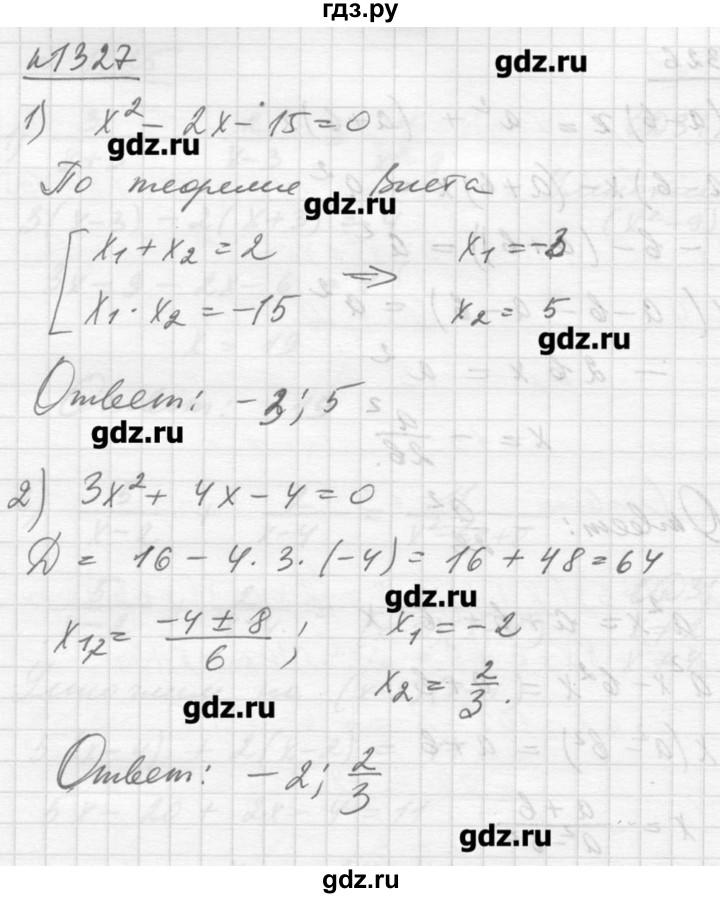 гдз.ру
№1327
gdz.ru
1) x² - 2x - 15 = 0
gdz.ru
По теореме Виета
gdz.ru
x₁ + x₂ = 2 ⇒ x₁ = -3
x₁ · x₂ = -15 x₂ = 5
gdz.ru
Ответ: -3; 5
gdz.ru
2) 3x² + 4x - 4 = 0
Д = 16 - 4 · 3 · (-4) = 16 + 48 = 64
gdz.ru
x₁,₂ = (-4 ± 8)/6 ; x₁ = -2
x₂ = 2/3.
gdz.ru
Ответ: -2; 2/3
gdz.ru
gdz.ru